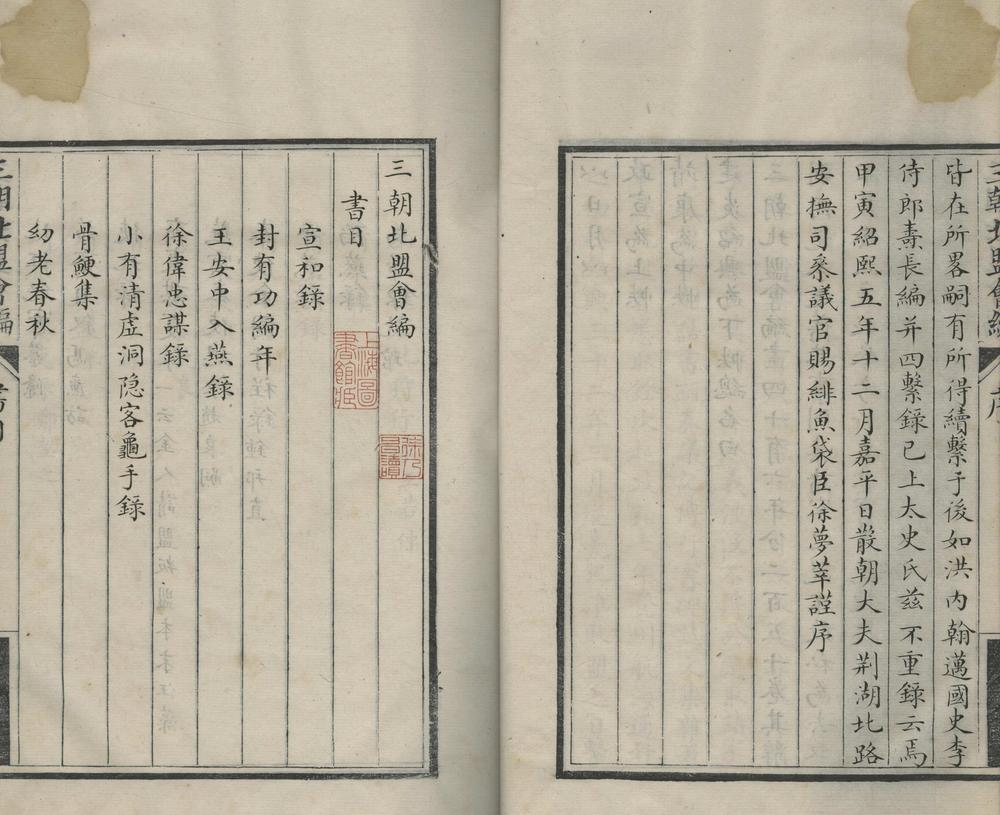 三朝北盟會編
序
皆在所畧嗣有所得續繫于後如洪内翰邁國史李
侍郎燾長編并四繫錄已上太史氏兹不重錄云焉
甲寅紹熙五年十二月嘉平日散朝大夫荆湖北路
安撫司叅議官賜緋魚袋臣徐夢莘謹序
三朝北盟會編
書目
宣和錄
封有功編年
王安中入燕錄
徐偉忠謀錄
小有清虛洞隐客龜手錄
骨鯁集
幼老春秋
三朝北盟會編
書目
上海圖書館藏
徐乃昌讀